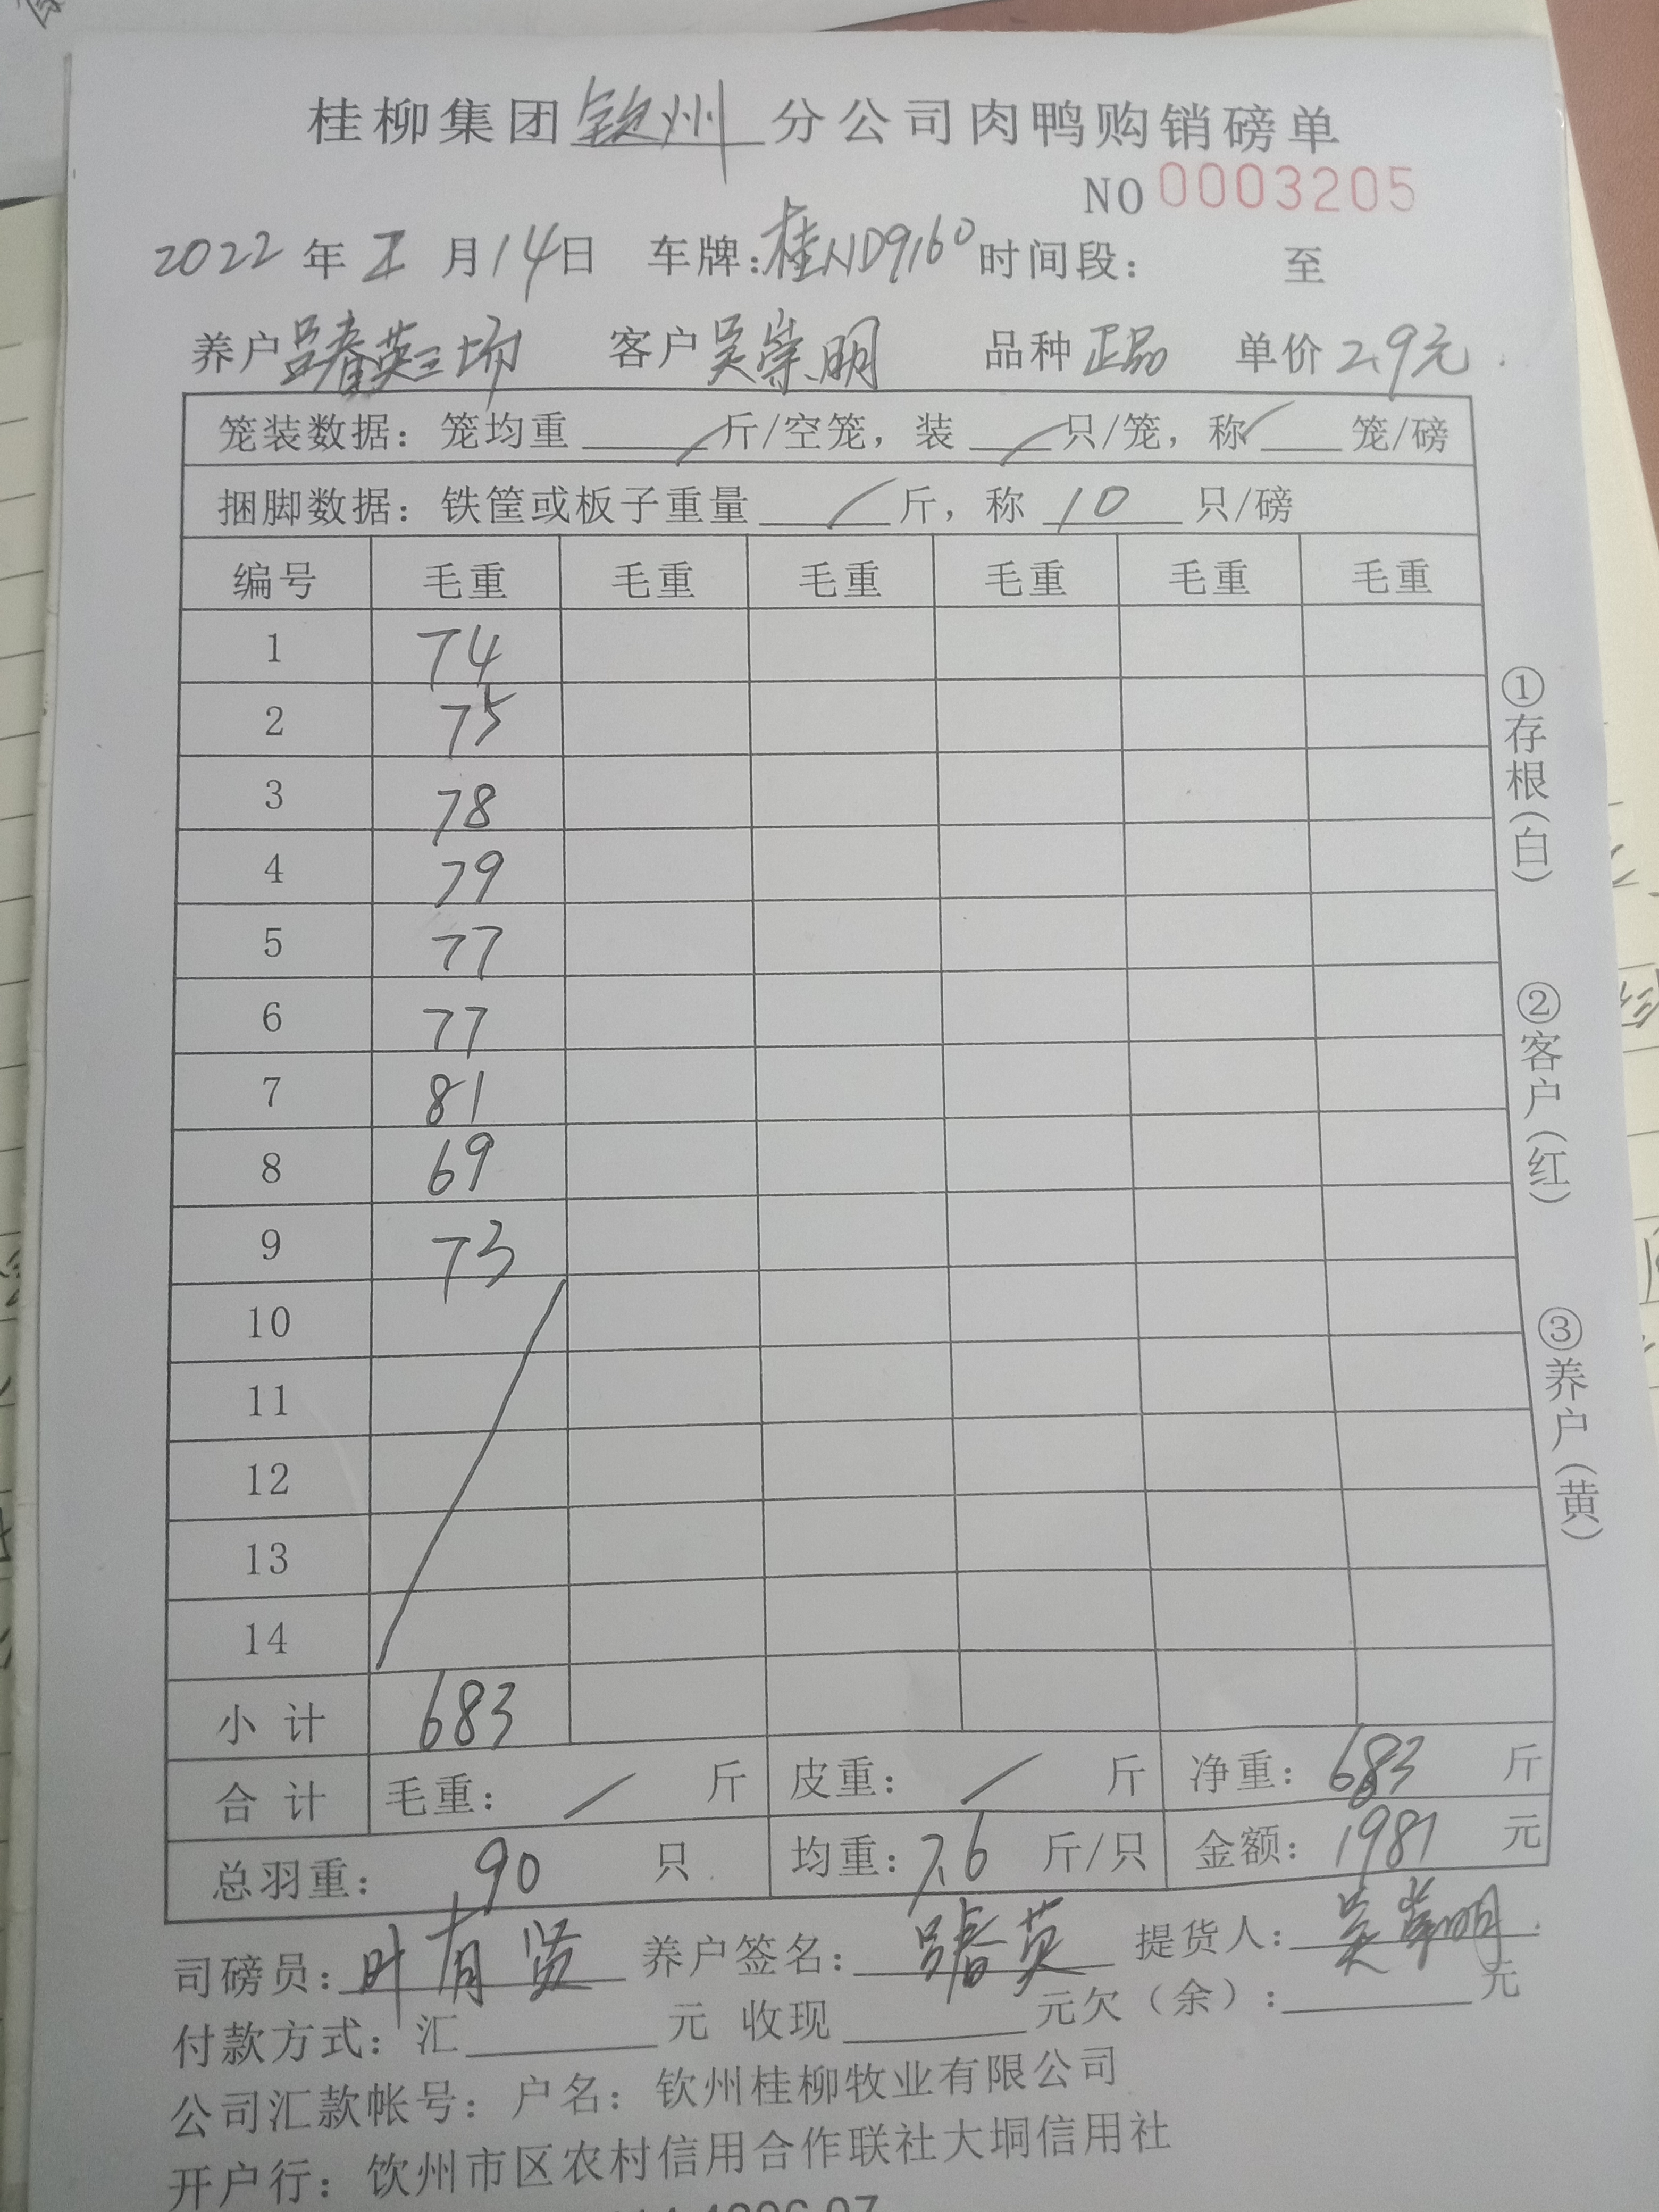 桂柳集团钦州分公司肉鸭购销磅单
NO 0003205
2022年 月14日 车牌:桂ND9160 时间段: 至
养户 吕春英三场 客户 吴崇明 品种 正品 单价 2.9元
笼装数据: 笼均重 / 斤/空笼, 装 / 只/笼, 称 / 笼/磅
捆脚数据: 铁筐或板子重量 / 斤, 称 10 只/磅
编号 毛重 毛重 毛重 毛重 毛重 毛重
1 74
2 75
3 78
4 79
5 77
6 77
7 81
8 69
9 73
10
11
12
13
14
小计 683
合计 毛重: / 斤 皮重: / 斤 净重: 683 斤
总羽重: 90 只 均重: 7.6 斤/只 金额: 1981 元
司磅员: 叶有贤 养户签名: 吕春英 提货人: 吴崇明
付款方式: 汇 元 收现 元欠（余）: 元
公司汇款帐号: 户名: 钦州桂柳牧业有限公司
开户行: 钦州市区农村信用合作联社大垌信用社
①存根(白)
②客户(红)
③养户(黄)